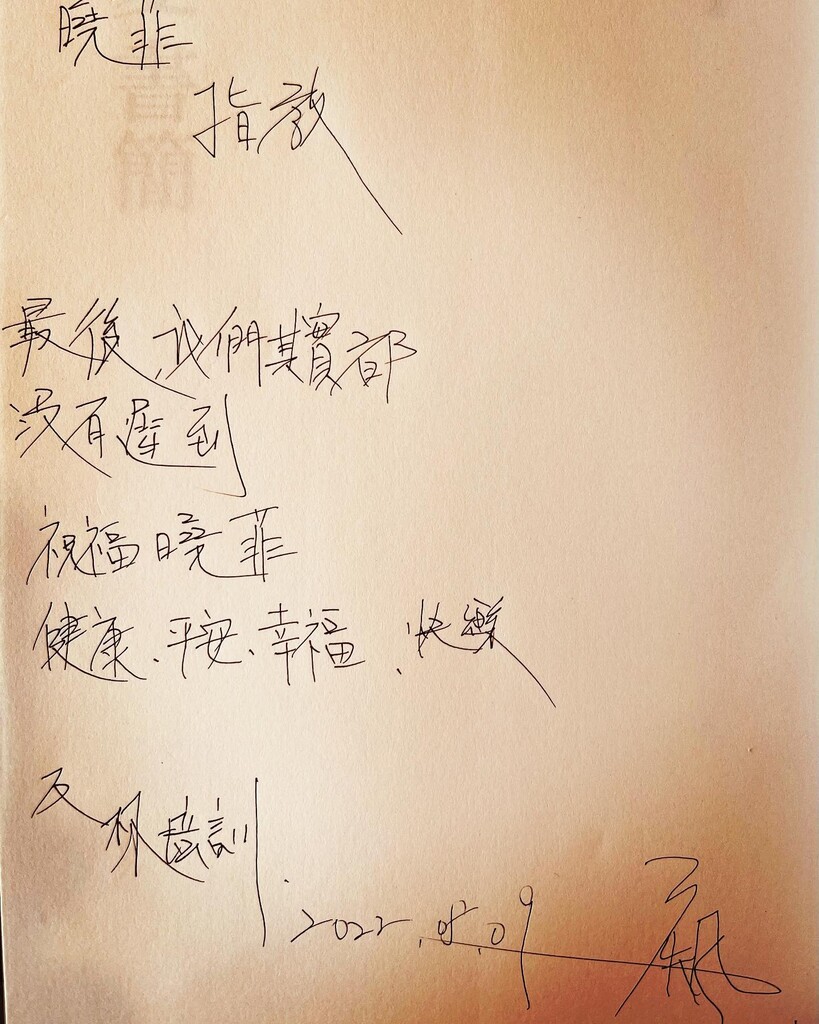 曉菲
指教
最後,我們其實都
沒有遲到
祝福曉菲
健康、平安、幸福、快樂
培訓
2022.05.09
書簡